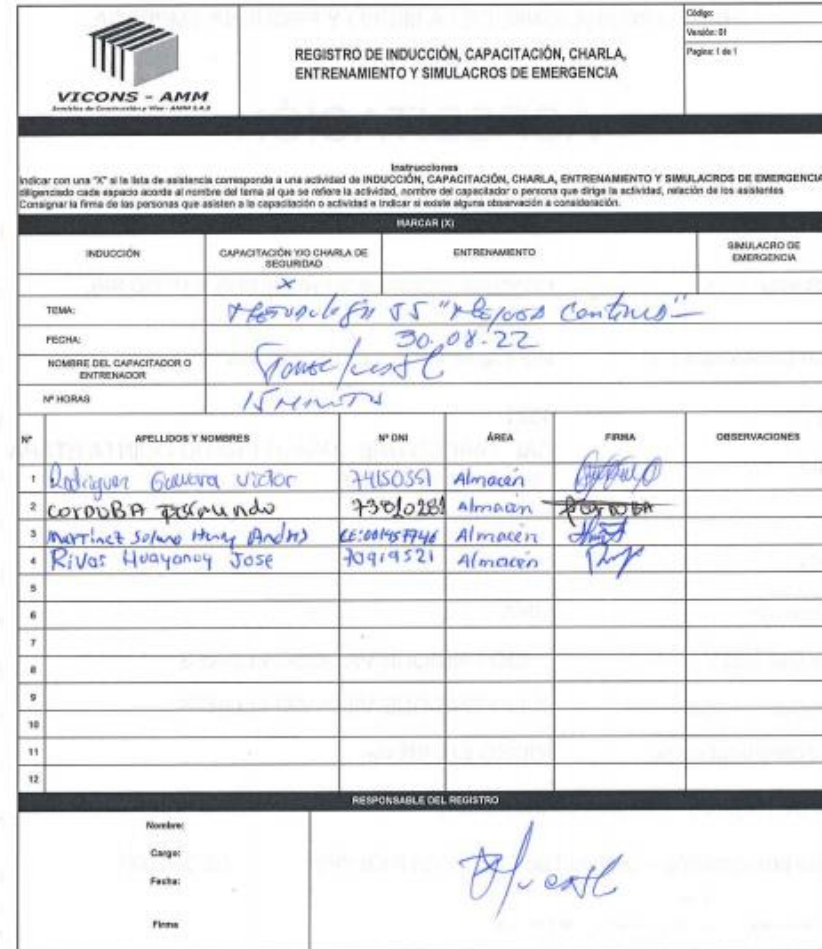 VICONS - AMM
Servicios de Construcción y Vias - AMM S.A.S
REGISTRO DE INDUCCIÓN, CAPACITACIÓN, CHARLA,
ENTRENAMIENTO Y SIMULACROS DE EMERGENCIA
Código:
Versión: 01
Pagina: 1 de 1
Instrucciones
Indicar con una "X" si la lista de asistencia corresponde a una actividad de INDUCCIÓN, CAPACITACIÓN, CHARLA, ENTRENAMIENTO Y SIMULACROS DE EMERGENCIA
diligenciado cada espacio acorde al nombre del tema al que se refiere la actividad, nombre del capacitador o persona que dirige la actividad, relación de los asistentes
Consignar la firma de las personas que asisten a la capacitación o actividad e indicar si existe alguna observación a consideración.
MARCAR (X)
INDUCCIÓN
CAPACITACIÓN Y/O CHARLA DE
SEGURIDAD
ENTRENAMIENTO
SIMULACRO DE
EMERGENCIA
X
TEMA: 5S "Mejora Continua"
FECHA: 30.08.22
NOMBRE DEL CAPACITADOR O
ENTRENADOR
Nº HORAS 15 MINUTOS
Nº APELLIDOS Y NOMBRES Nº DNI ÁREA FIRMA OBSERVACIONES
1 Rodriguez Guevara Victor 74150551 Almacén
2 CORDOBA 73810281 Almacén CORDOBA
3 Martinez Solano Henry Andres CE:001457746 Almacén
4 Rivas Huayanay Jose 70919521 Almacén
5
6
7
8
9
10
11
12
RESPONSABLE DEL REGISTRO
Nombre:
Cargo:
Fecha:
Firma